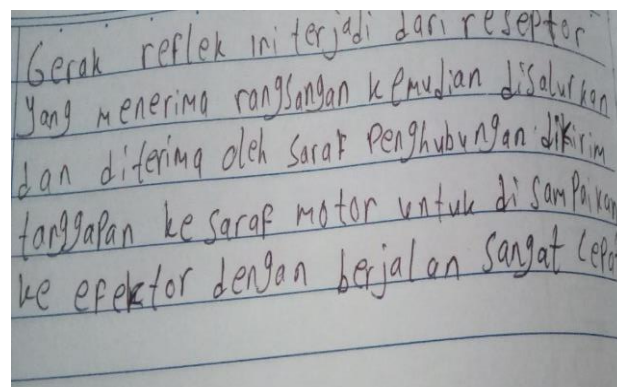 Gerak reflek ini terjadi dari reseptor
yang menerima rangsangan kemudian disalurkan
dan diterima oleh saraf Penghubungan dikirim
tanggapan ke saraf motor untuk di sampaikan
ke efektor dengan berjalan sangat cepa